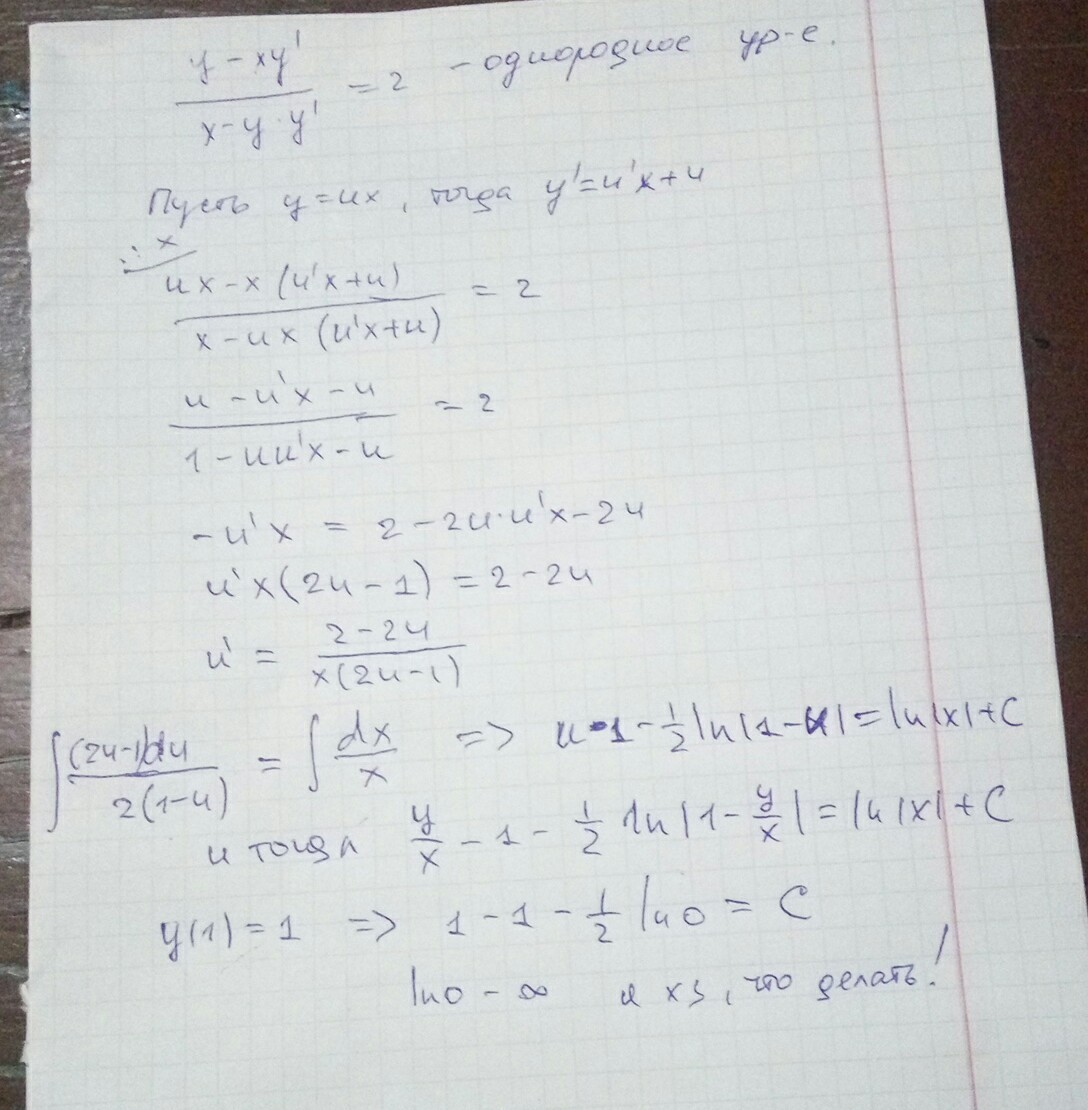 (y - xy')/(x - y·y') = 2 - однородное ур-е.
Пусть y = ux, тогда y' = u'x + u
: x
(ux - x(u'x+u))/(x - ux(u'x+u)) = 2
(u - u'x - u)/(1 - uu'x - u) = 2
-u'x = 2 - 2u·u'x - 2u
u'x(2u - 1) = 2 - 2u
u' = (2 - 2u)/(x(2u-1))
∫ (2u-1)du/(2(1-u)) = ∫ dx/x => u - 1 - 1/2 ln|1-u| = ln|x| + C
и тогда y/x - 1 - 1/2 ln|1 - y/x| = ln|x| + C
y(1) = 1 => 1 - 1 - 1/2 ln 0 = C
ln 0 - ∞ и хз, что делать!